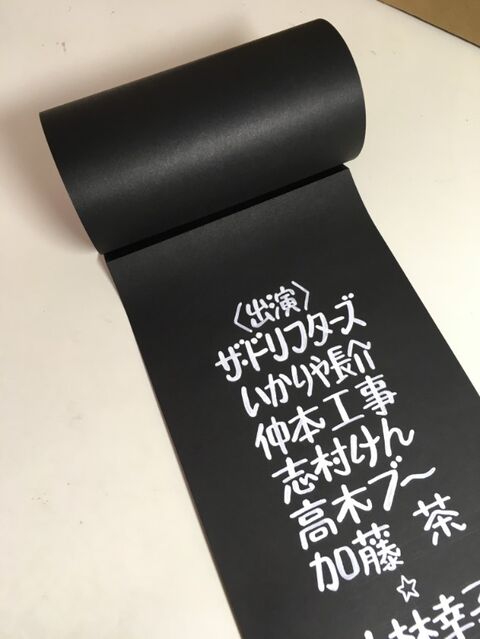 〈出演〉
ザ・ドリフターズ
いかりや長介
仲本工事
志村けん
高木ブ〜
加藤 茶
☆
林幸子